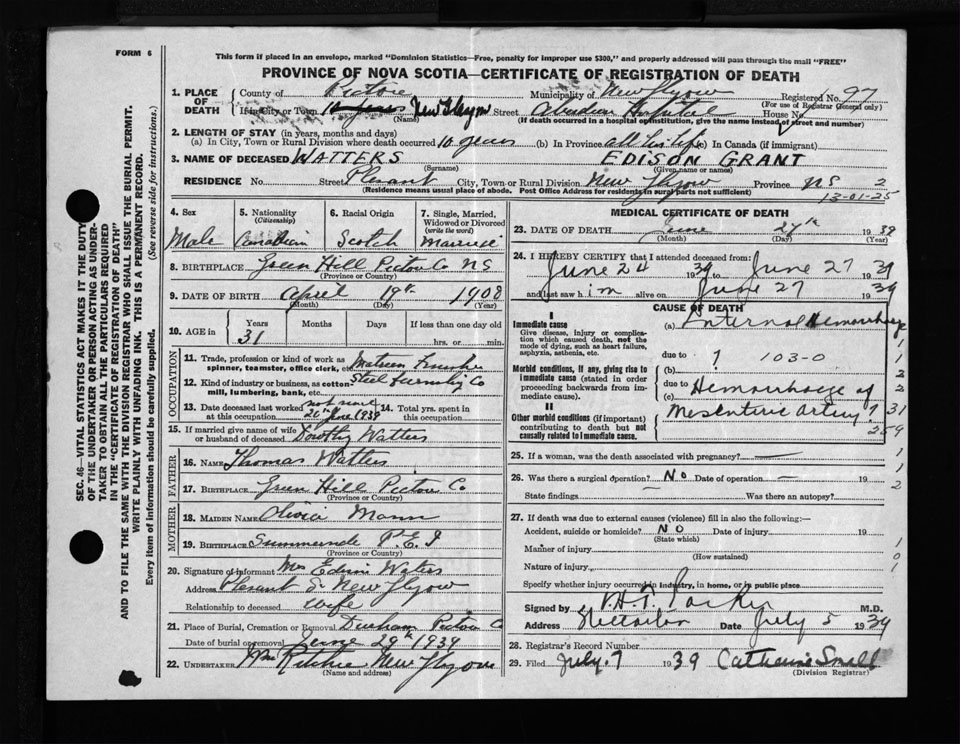 FORM 6
This form if placed in an envelope, marked "Dominion Statistics—Free, penalty for improper use $300," and properly addressed will pass through the mail "FREE"
PROVINCE OF NOVA SCOTIA—CERTIFICATE OF REGISTRATION OF DEATH
SEC. 46—VITAL STATISTICS ACT MAKES IT THE DUTY
OF THE UNDERTAKER OR PERSON ACTING AS UNDER-
TAKER TO OBTAIN ALL THE PARTICULARS REQUIRED
IN THE "CERTIFICATE OF REGISTRATION OF DEATH"
AND TO FILE THE SAME WITH THE DIVISION REGISTRAR WHO SHALL ISSUE THE BURIAL PERMIT.
WRITE PLAINLY WITH UNFADING INK. THIS IS A PERMANENT RECORD.
Every item of information should be carefully supplied. (See reverse side for instructions.)
1. PLACE OF DEATH
County of Pictou Municipality of New Glasgow Registered No. 97
(For use of Registrar General only)
If in City or Town New Glasgow Street Aberdeen Hospital House No.
(Name) (If death occurred in a hospital or institution, give the name instead of street and number)
2. LENGTH OF STAY (in years, months and days)
(a) In City, Town or Rural Division where death occurred 10 years (b) In Province all his life (c) In Canada (if immigrant)
3. NAME OF DECEASED WATTERS EDISON GRANT
(Surname) (Given name or names)
RESIDENCE No. Street Plesant City, Town or Rural Division New Glasgow Province NS 2
(Residence means usual place of abode. Post Office Address for residents in rural parts not sufficient)
13-01-25
4. Sex
Male
5. Nationality
(Citizenship)
Canadian
6. Racial Origin
Scotch
7. Single, Married, Widowed or Divorced
(write the word)
Married
8. BIRTHPLACE Green Hill Pictou Co NS
(Province or Country)
9. DATE OF BIRTH April 19th 1908
(Month) (Day) (Year)
10. AGE in Years Months Days If less than one day old
31 hrs. or min.
OCCUPATION
11. Trade, profession or kind of work as
spinner, teamster, office clerk, etc.
12. Kind of industry or business, as cotton
mill, lumbering, bank, etc. Steel Co
13. Date deceased last worked at this occupation 20th June 1939
14. Total yrs. spent in this occupation
15. If married give name of wife
or husband of deceased Dorothy Watters
FATHER
16. NAME Thomas Watters
17. BIRTHPLACE Green Hill Pictou Co
(Province or Country)
MOTHER
18. MAIDEN NAME Olivia Mann
19. BIRTHPLACE Summerside P.E.I
(Province or Country)
20. Signature of informant Mrs Edison Waters
Address Plesant St New Glasgow
Relationship to deceased wife
21. Place of Burial, Cremation or Removal Durham Pictou Co
Date of burial or removal June 29th 1939
22. UNDERTAKER Wm Ritchie New Glasgow
(Name and address)
MEDICAL CERTIFICATE OF DEATH
23. DATE OF DEATH June 27th 1939
(Month) (Day) (Year)
24. I HEREBY CERTIFY that I attended deceased from:
June 24 1939 to June 27 1939
and last saw him alive on June 27 1939
CAUSE OF DEATH
I
Immediate cause
Give disease, injury or complica-
tion which caused death, not the
mode of dying, such as heart failure,
asphyxia, asthenia, etc.
(a) Internal Hemorrhage
due to ? 103-0
Morbid conditions, if any, giving rise to
immediate cause (stated in order
proceeding backwards from im-
mediate cause).
(b)
due to
(c) Hemorrhage of
Mesenteric Artery ? 31
259
II
Other morbid conditions (if important)
contributing to death but not
causally related to immediate cause.
25. If a woman, was the death associated with pregnancy? —
26. Was there a surgical operation? No Date of operation — 19
State findings — Was there an autopsy?
27. If death was due to external causes (violence) fill in also the following:—
Accident, suicide or homicide? NO Date of injury 19
(State which)
Manner of injury
(How sustained)
Nature of injury
Specify whether injury occurred in industry, in home, or in public place
Signed by H.T. Parker M.D.
Address Date July 5 1939
28. Registrar's Record Number
29. Filed July 7 1939 Catherine Small
(Division Registrar)